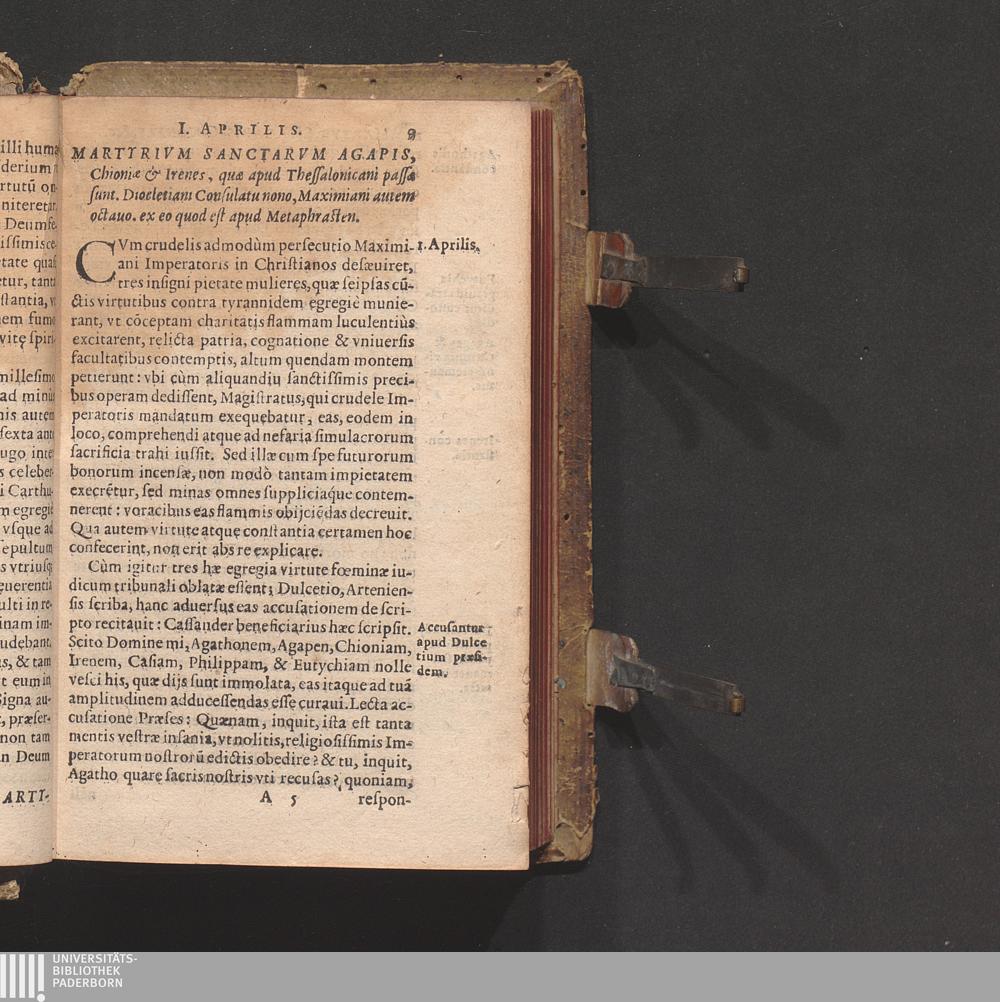 illi huma
derium
rtutū on
niteretur
Deum fe
issimis ce
tate quas
etur, tant
stantia, v
nem fumo
vitę spiri
millesimo
ad minus
nis autem
sexta ant
ugo inte
s celeber
i Carthu-
m egregiè
vsque ad
epultum
s vtriusq́;
euerentia
ulti in re-
inam im-
udebant,
us, & tam
t eum in
Signa au-
t, præser-
non tam
n Deum
ARTY-
I. APRILIS. 9
MARTYRIVM SANCTARVM AGAPIS,
Chioniæ & Irenes, quæ apud Thessalonicam passæ
sunt. Diocletiani Consulatu nono, Maximiani autem
octauo. ex eo quod est apud Metaphrasten.
CVm crudelis admodùm persecutio Maximi-
ani Imperatoris in Christianos desæuiret,
tres insigni pietate mulieres, quæ seipsas cū-
ctis virtutibus contra tyrannidem egregiè munie-
rant, vt cōceptam charitatis flammam luculentiùs
excitarent, relicta patria, cognatione & vniuersis
facultatibus contemptis, altum quendam montem
petierunt: vbi cùm aliquandiu sanctissimis preci-
bus operam dedissent, Magistratus, qui crudele Im-
peratoris mandatum exequebatur, eas, eodem in
loco, comprehendi atque ad nefaria simulacrorum
sacrificia trahi iussit. Sed illæ cum spe futurorum
bonorum incensæ, non modò tantam impietatem
execrētur, sed minas omnes suppliciaq́ue contem-
nerent: voracibus eas flammis obijciēdas decreuit.
Qua autem virtute atque constantia certamen hoc
confecerint, non erit abs re explicare.
Cùm igitur tres hæ egregia virtute fœminæ iu-
dicum tribunali oblatæ essent; Dulcetio, Artenien-
sis scriba, hanc aduersus eas accusationem de scri-
pto recitauit: Cassander beneficiarius hæc scripsit.
Scito Domine mi, Agathonem, Agapen, Chioniam,
Irenem, Casiam, Philippam, & Eutychiam nolle
vesci his, quæ dijs sunt immolata, eas itaque ad tuā
amplitudinem adducessendas esse curaui. Lecta ac-
cusatione Præses: Quænam, inquit, ista est tanta
mentis vestræ insania, vt nolitis, religiosissimis Im-
peratorum nostrorū edictis obedire? & tu, inquit,
Agatho quare sacris nostris vti recusas? quoniam,
A 5 respon-
1. Aprilis.
Accusantur
apud Dulce
tium præsi-
dem.
UNIVERSITÄTS-
BIBLIOTHEK
PADERBORN